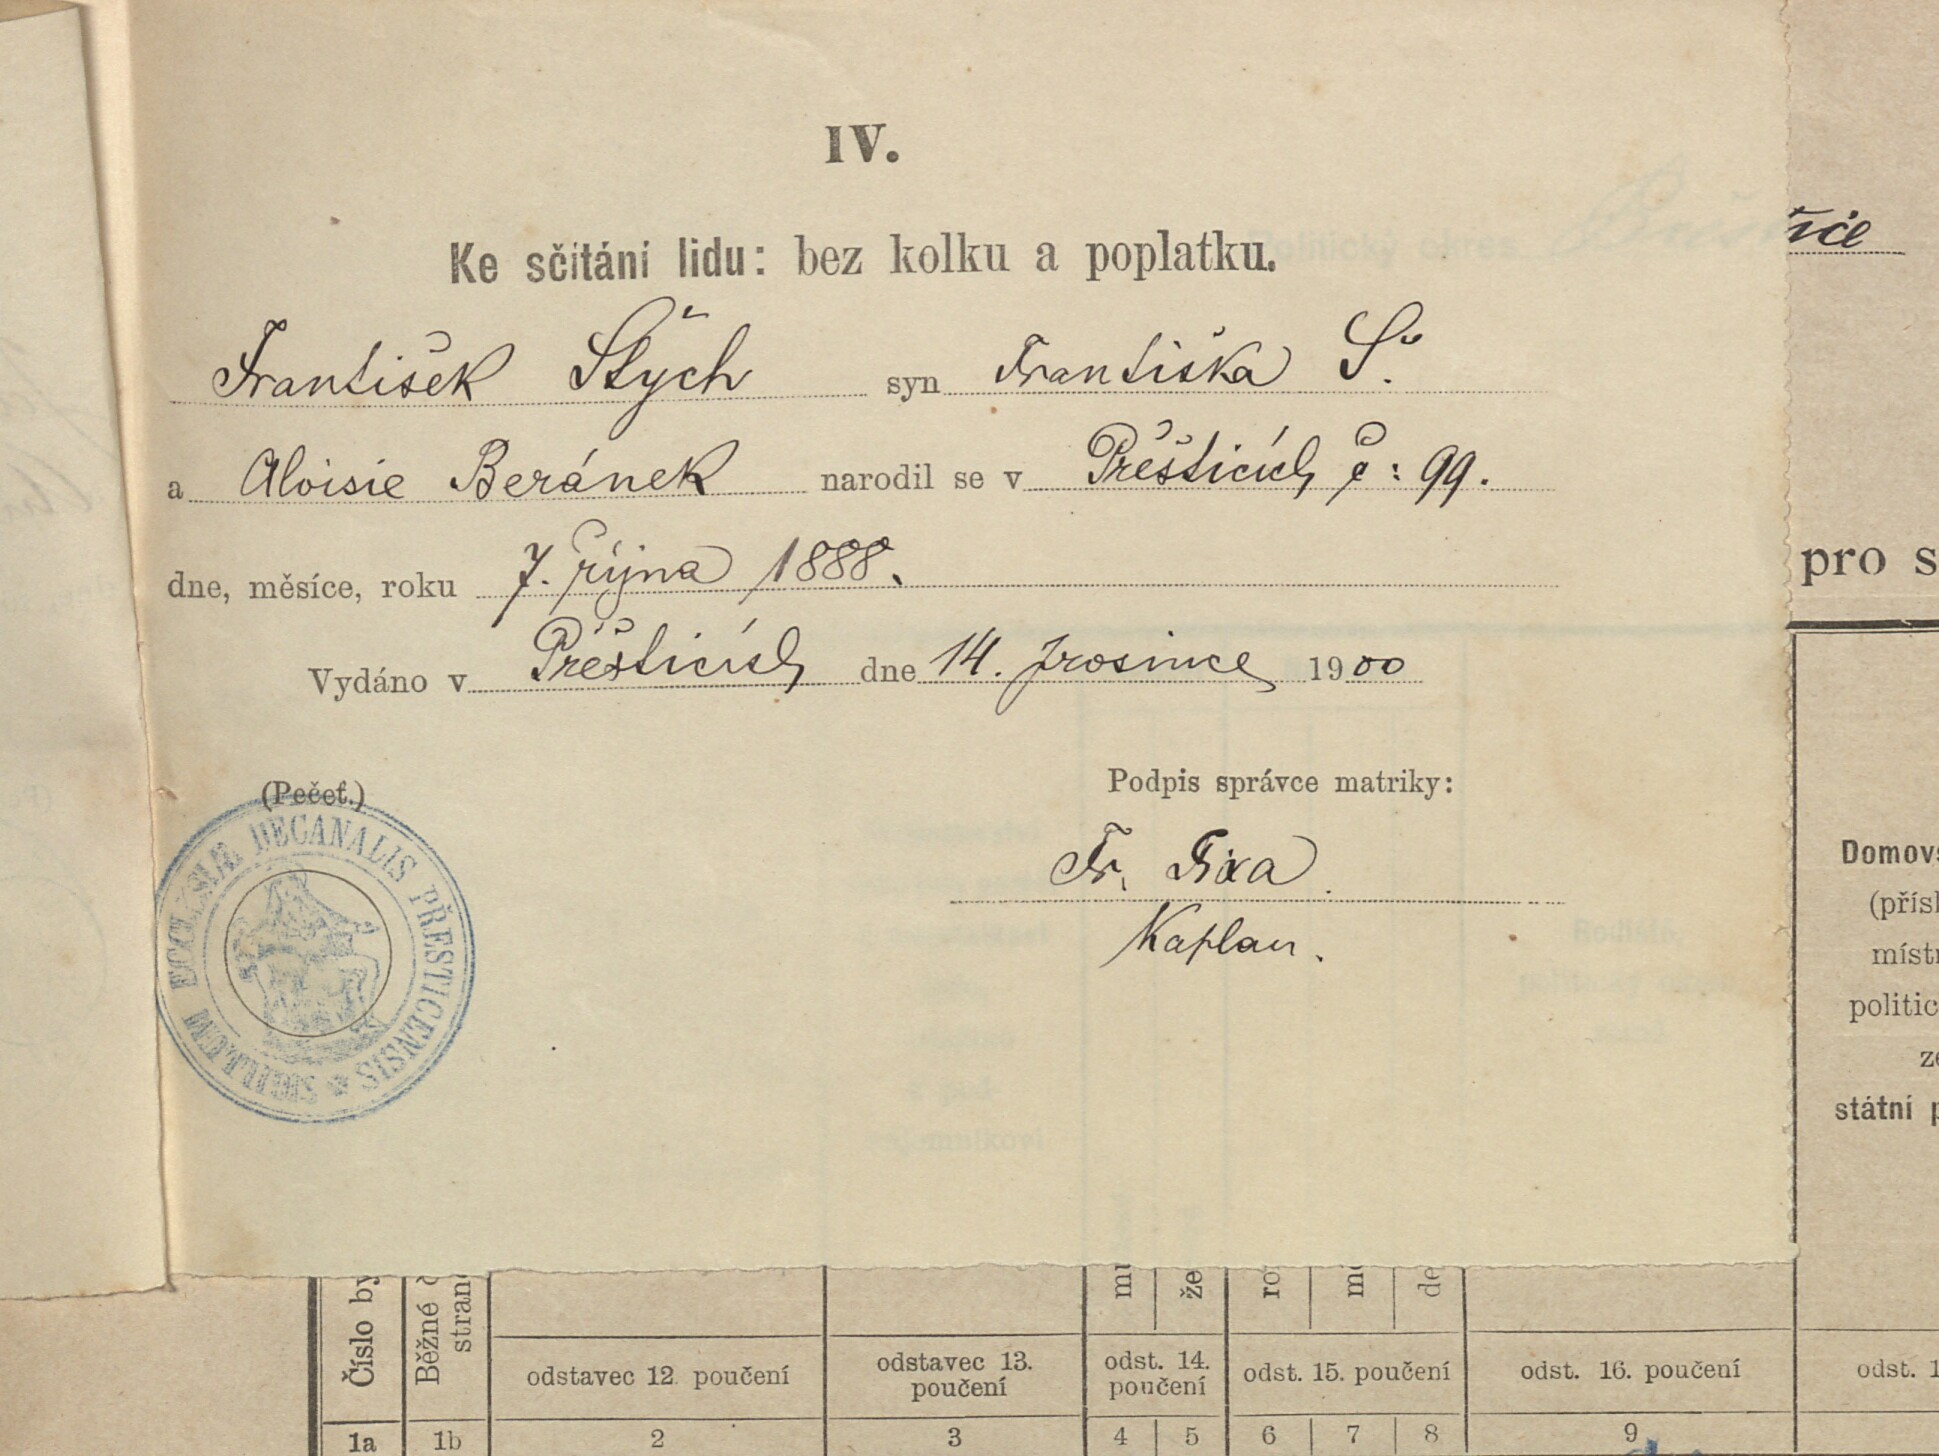 IV.
Ke sčítání lidu: bez kolku a poplatku.
František Štých syn Františka Š.
a Aloisie Beránek narodil se v Přešticích č: 99.
dne, měsíce, roku 7. října 1888.
Vydáno v Přešticích dne 14. prosince 1900
(Pečeť.)
SIGILLUM ECCLESIÆ DECANALIS PŘESTICENSIS
Podpis správce matriky:
Fr. Fixa
Kaplan.
pro s
Domovs
(přísl
místn
politic
ze
státní p
Číslo by
Běžné č
stran
mu
že
ro
mě
de
odstavec 12. poučení
odstavec 13. poučení
odst. 14. poučení
odst. 15. poučení
odst. 16. poučení
odst. 1
1a 1b 2 3 4 5 6 7 8 9